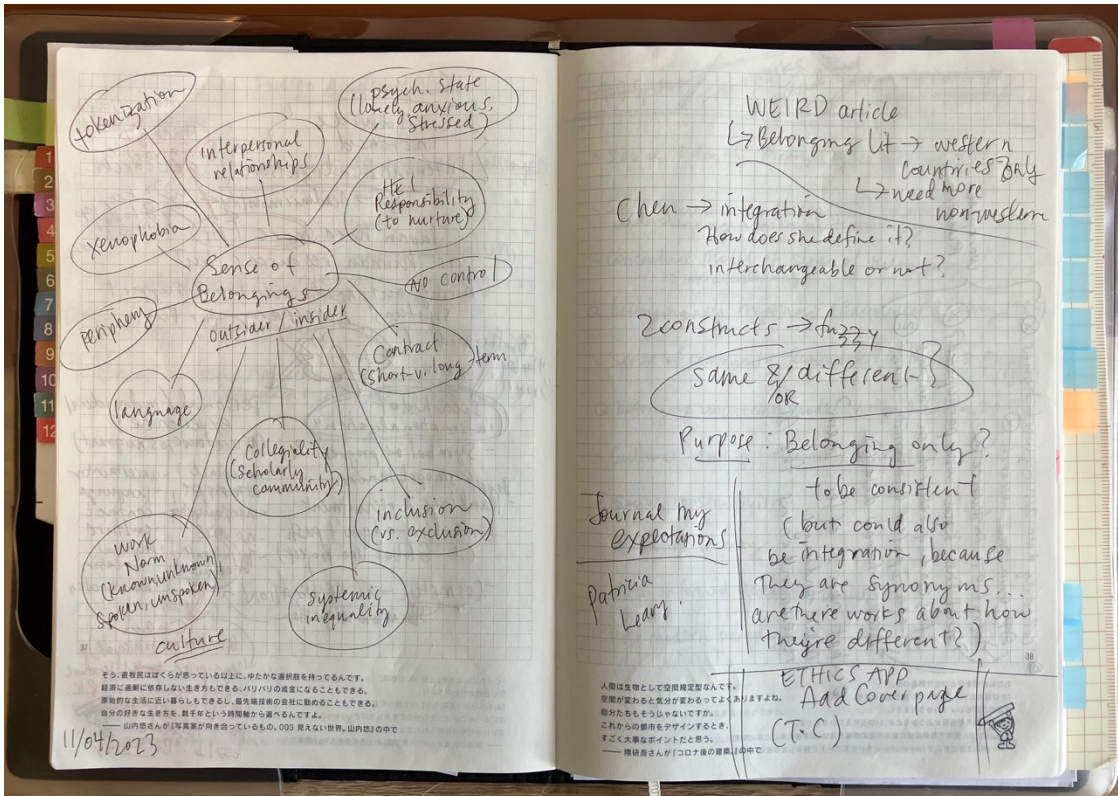 tokenization
psych. state
(lonely, anxious,
stressed)
interpersonal
relationships
HEI
Responsibility
(to nurture)
xenophobia
Sense of
Belongings
No control
outsider / insider
periphery
Contract
(short-v. long-term
language
Collegiality
(Scholarly
community)
inclusion
(vs. exclusion)
work
Norm
(known, unknown
spoken, unspoken)
systemic
inequality
culture
37
そう、遊牧民はぼくらが思っている以上に、ゆたかな選択肢を持ってるんです。
経済に過剰に依存しない生き方もできる、バリバリの成金になることもできる。
原始的な生活に近い暮らしもできるし、最先端技術の会社に勤めることもできる。
自分の好きな生き方を、数千年という時間軸から選べるんですよ。
——山内悠さんが『写真家が向き合っているもの。003 見えない世界。山内悠』の中で
11/04/2023
1
2
3
4
5
6
7
8
9
10
11
12
WEIRD article
↳ Belonging Lit → western
countries only
↳ need more
non-western
Chen → integration
How does she define it?
interchangeable or not?
2 constructs → fuzzy
same &/different?
/OR
Purpose: Belonging only?
to be consistent
(but could also
be integration, because
they are synonyms...
are there works about how
they're different?)
Journal my
expectations
Patricia
Leary.
38
ETHICS APP
Add Cover page
(T.C)
人間は生物として空間規定型なんです。
空間が変わると気分が変わるってよくありますよね。
自分たちもそうじゃないですか。
これからの都市をデザインするとき、
すごく大事なポイントだと思う。
——隈研吾さんが『コロナ後の建築。』の中で